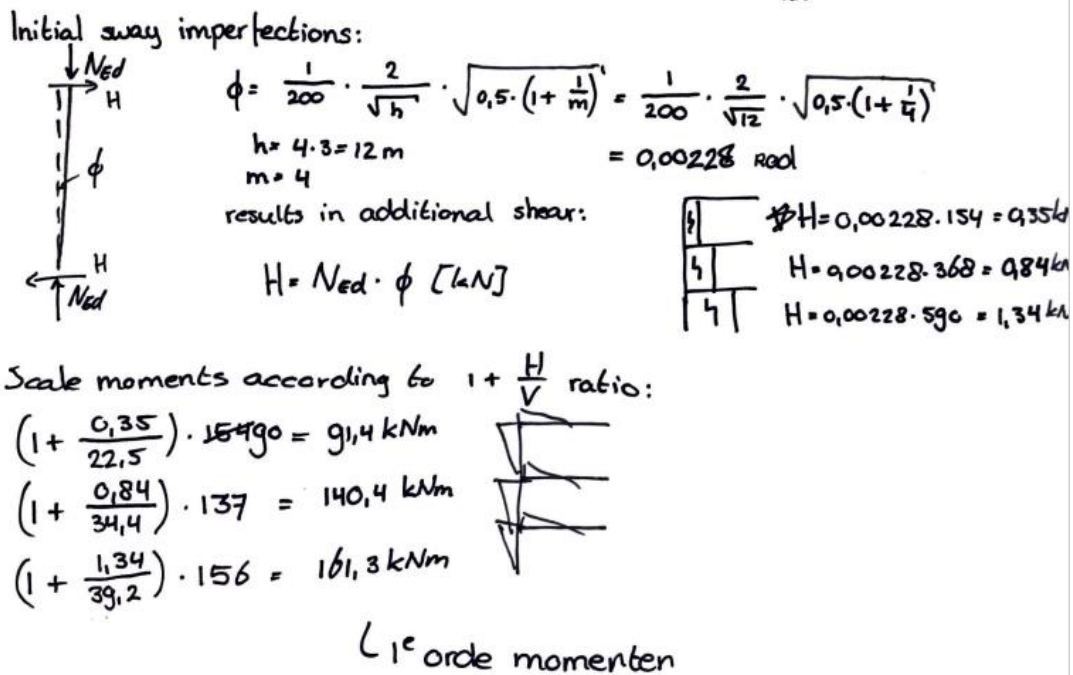 Initial sway imperfections:
NEd
H
ϕ
H
NEd
ϕ = 1/200 · 2/√h · √(0,5·(1 + 1/m)) = 1/200 · 2/√12 · √(0,5·(1 + 1/4))
h = 4·3 = 12 m
m = 4
= 0,00228 rad
results in additional shear:
H = NEd · ϕ [kN]
H = 0,00228·154 = 0,35 kN
H = 0,00228·368 = 0,84 kN
H = 0,00228·590 = 1,34 kN
Scale moments according to 1 + H/V ratio:
(1 + 0,35/22,5) · 90 = 91,4 kNm
(1 + 0,84/34,4) · 137 = 140,4 kNm
(1 + 1,34/39,2) · 156 = 161,3 kNm
1e orde momenten